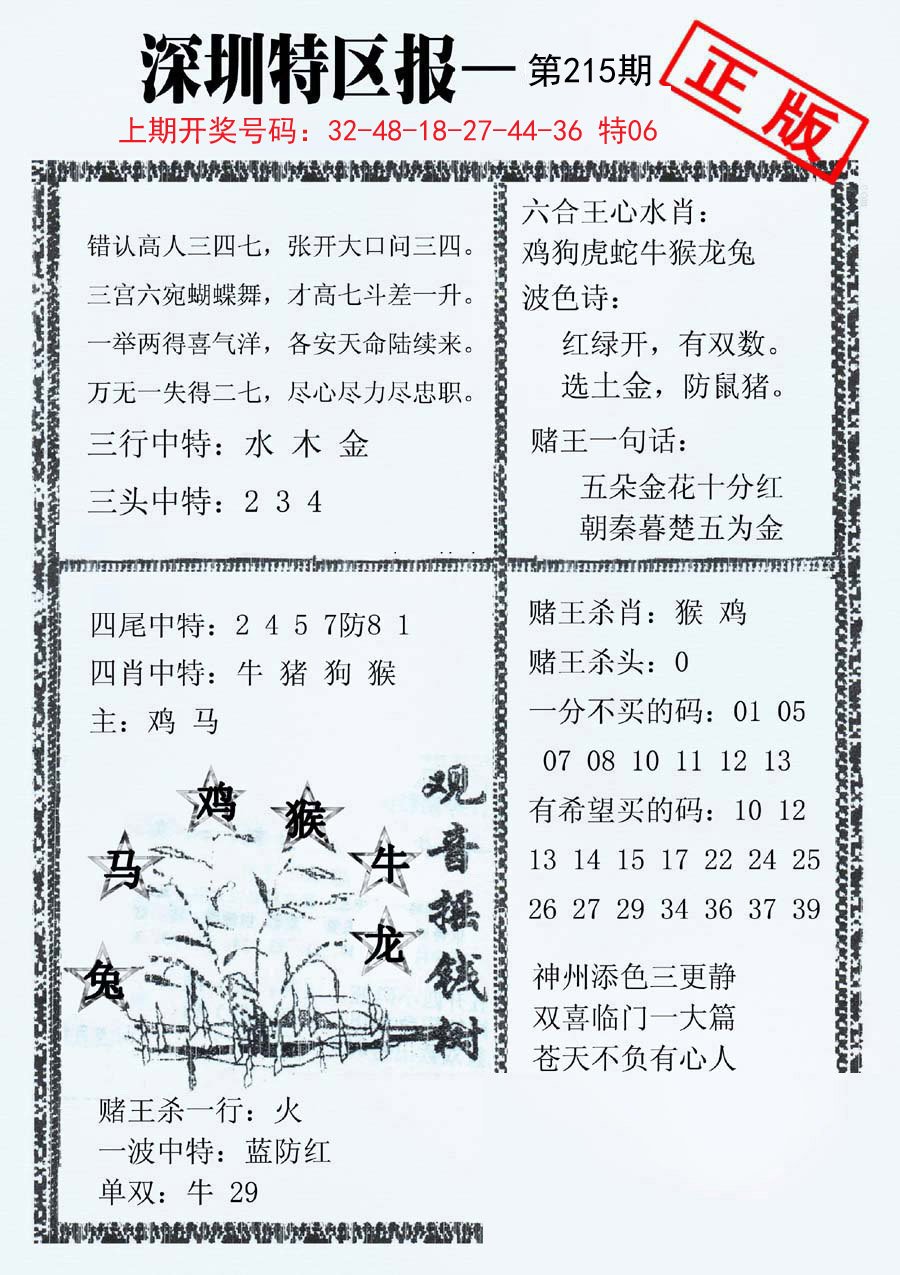 深圳特区报— 第215期
正版
上期开奖号码：32-48-18-27-44-36 特06
错认高人三四七，张开大口问三四。
三宫六宛蝴蝶舞，才高七斗差一升。
一举两得喜气洋，各安天命陆续来。
万无一失得二七，尽心尽力尽忠职。
三行中特：水 木 金
三头中特：2 3 4
六合王心水肖：
鸡狗虎蛇牛猴龙兔
波色诗：
红绿开，有双数。
选土金，防鼠猪。
赌王一句话：
五朵金花十分红
朝秦暮楚五为金
四尾中特：2 4 5 7防8 1
四肖中特：牛 猪 狗 猴
主：鸡 马
鸡
猴
马
牛
龙
兔
观音摇钱树
赌王杀一行：火
一波中特：蓝防红
单双：牛 29
赌王杀肖：猴 鸡
赌王杀头：0
一分不买的码：01 05
07 08 10 11 12 13
有希望买的码：10 12
13 14 15 17 22 24 25
26 27 29 34 36 37 39
神州添色三更静
双喜临门一大篇
苍天不负有心人